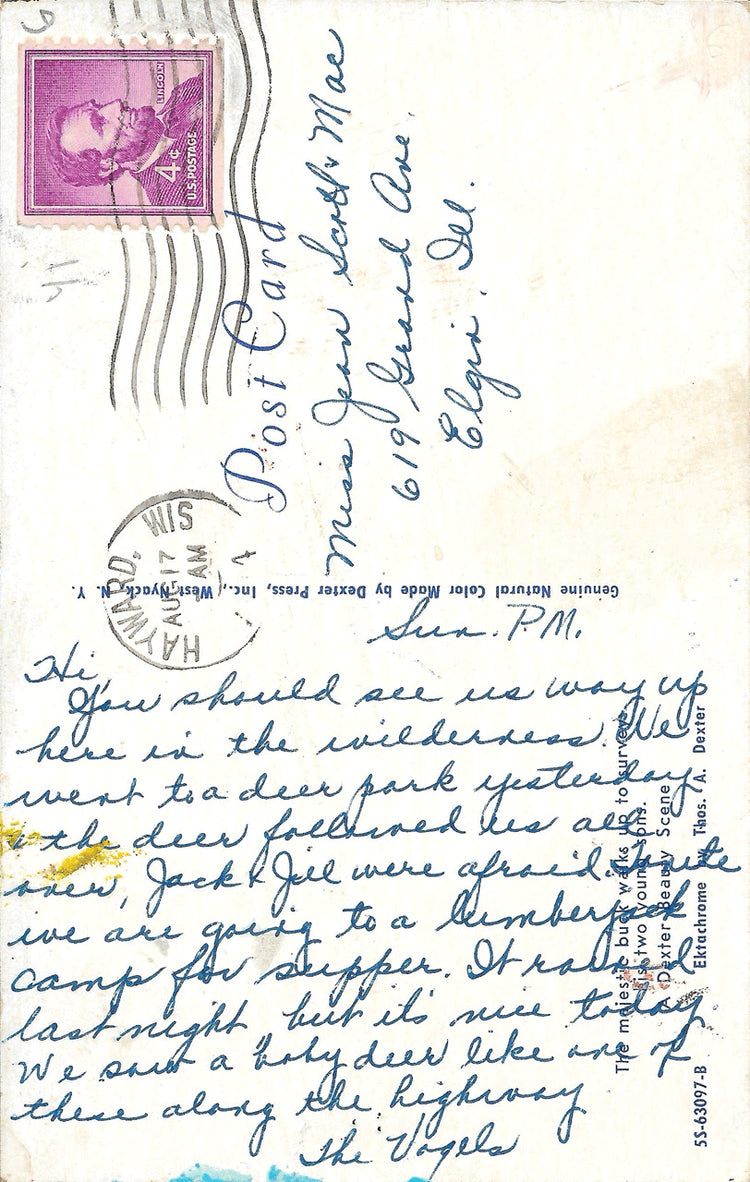 LINCOLN
4¢
U.S. POSTAGE
HAYWARD, WIS
AUG 17
AM
Post Card
Miss Jean Scott & Mae
619 Grand Ave.
Elgin. Ill.
Genuine Natural Color Made by Dexter Press, Inc., West Nyack, N. Y.
Sun. P.M.
Hi,
You should see us way up
here in the wilderness. We
went to a deer park yesterday
& the deer followed us all
over, Jack & Jill were afraid. Tonite
we are going to a lumberjack
camp for supper. It rained
last night, but it's nice today
We saw a baby deer like one of
these along the highway
The Vogels
The majestic buck walks up to survey
his two young sons.
A Dexter Beauty Scene
Ektachrome by Thos. A. Dexter
5S-63097-B